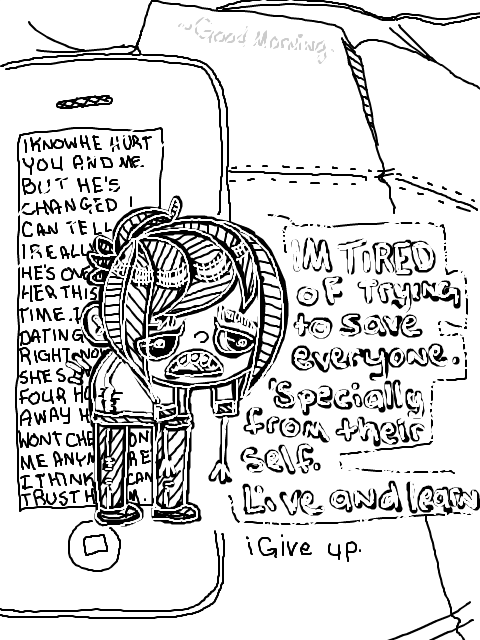 ~Good Morning.
I KNOW HE HURT
YOU AND ME.
BUT HE'S
CHANGED I
CAN TELL
HE'S OVE
HER THIS
TIME. I
DATING
RIGHT NOW
SHES
FOUR H
AWAY H
WONT CH ON
ME ANYM RE
I THINK CAN
TRUST H M.
IM TIRED
OF TRYING
to save
everyone.
'Specially
from their
self.
Live and learn
i Give up.